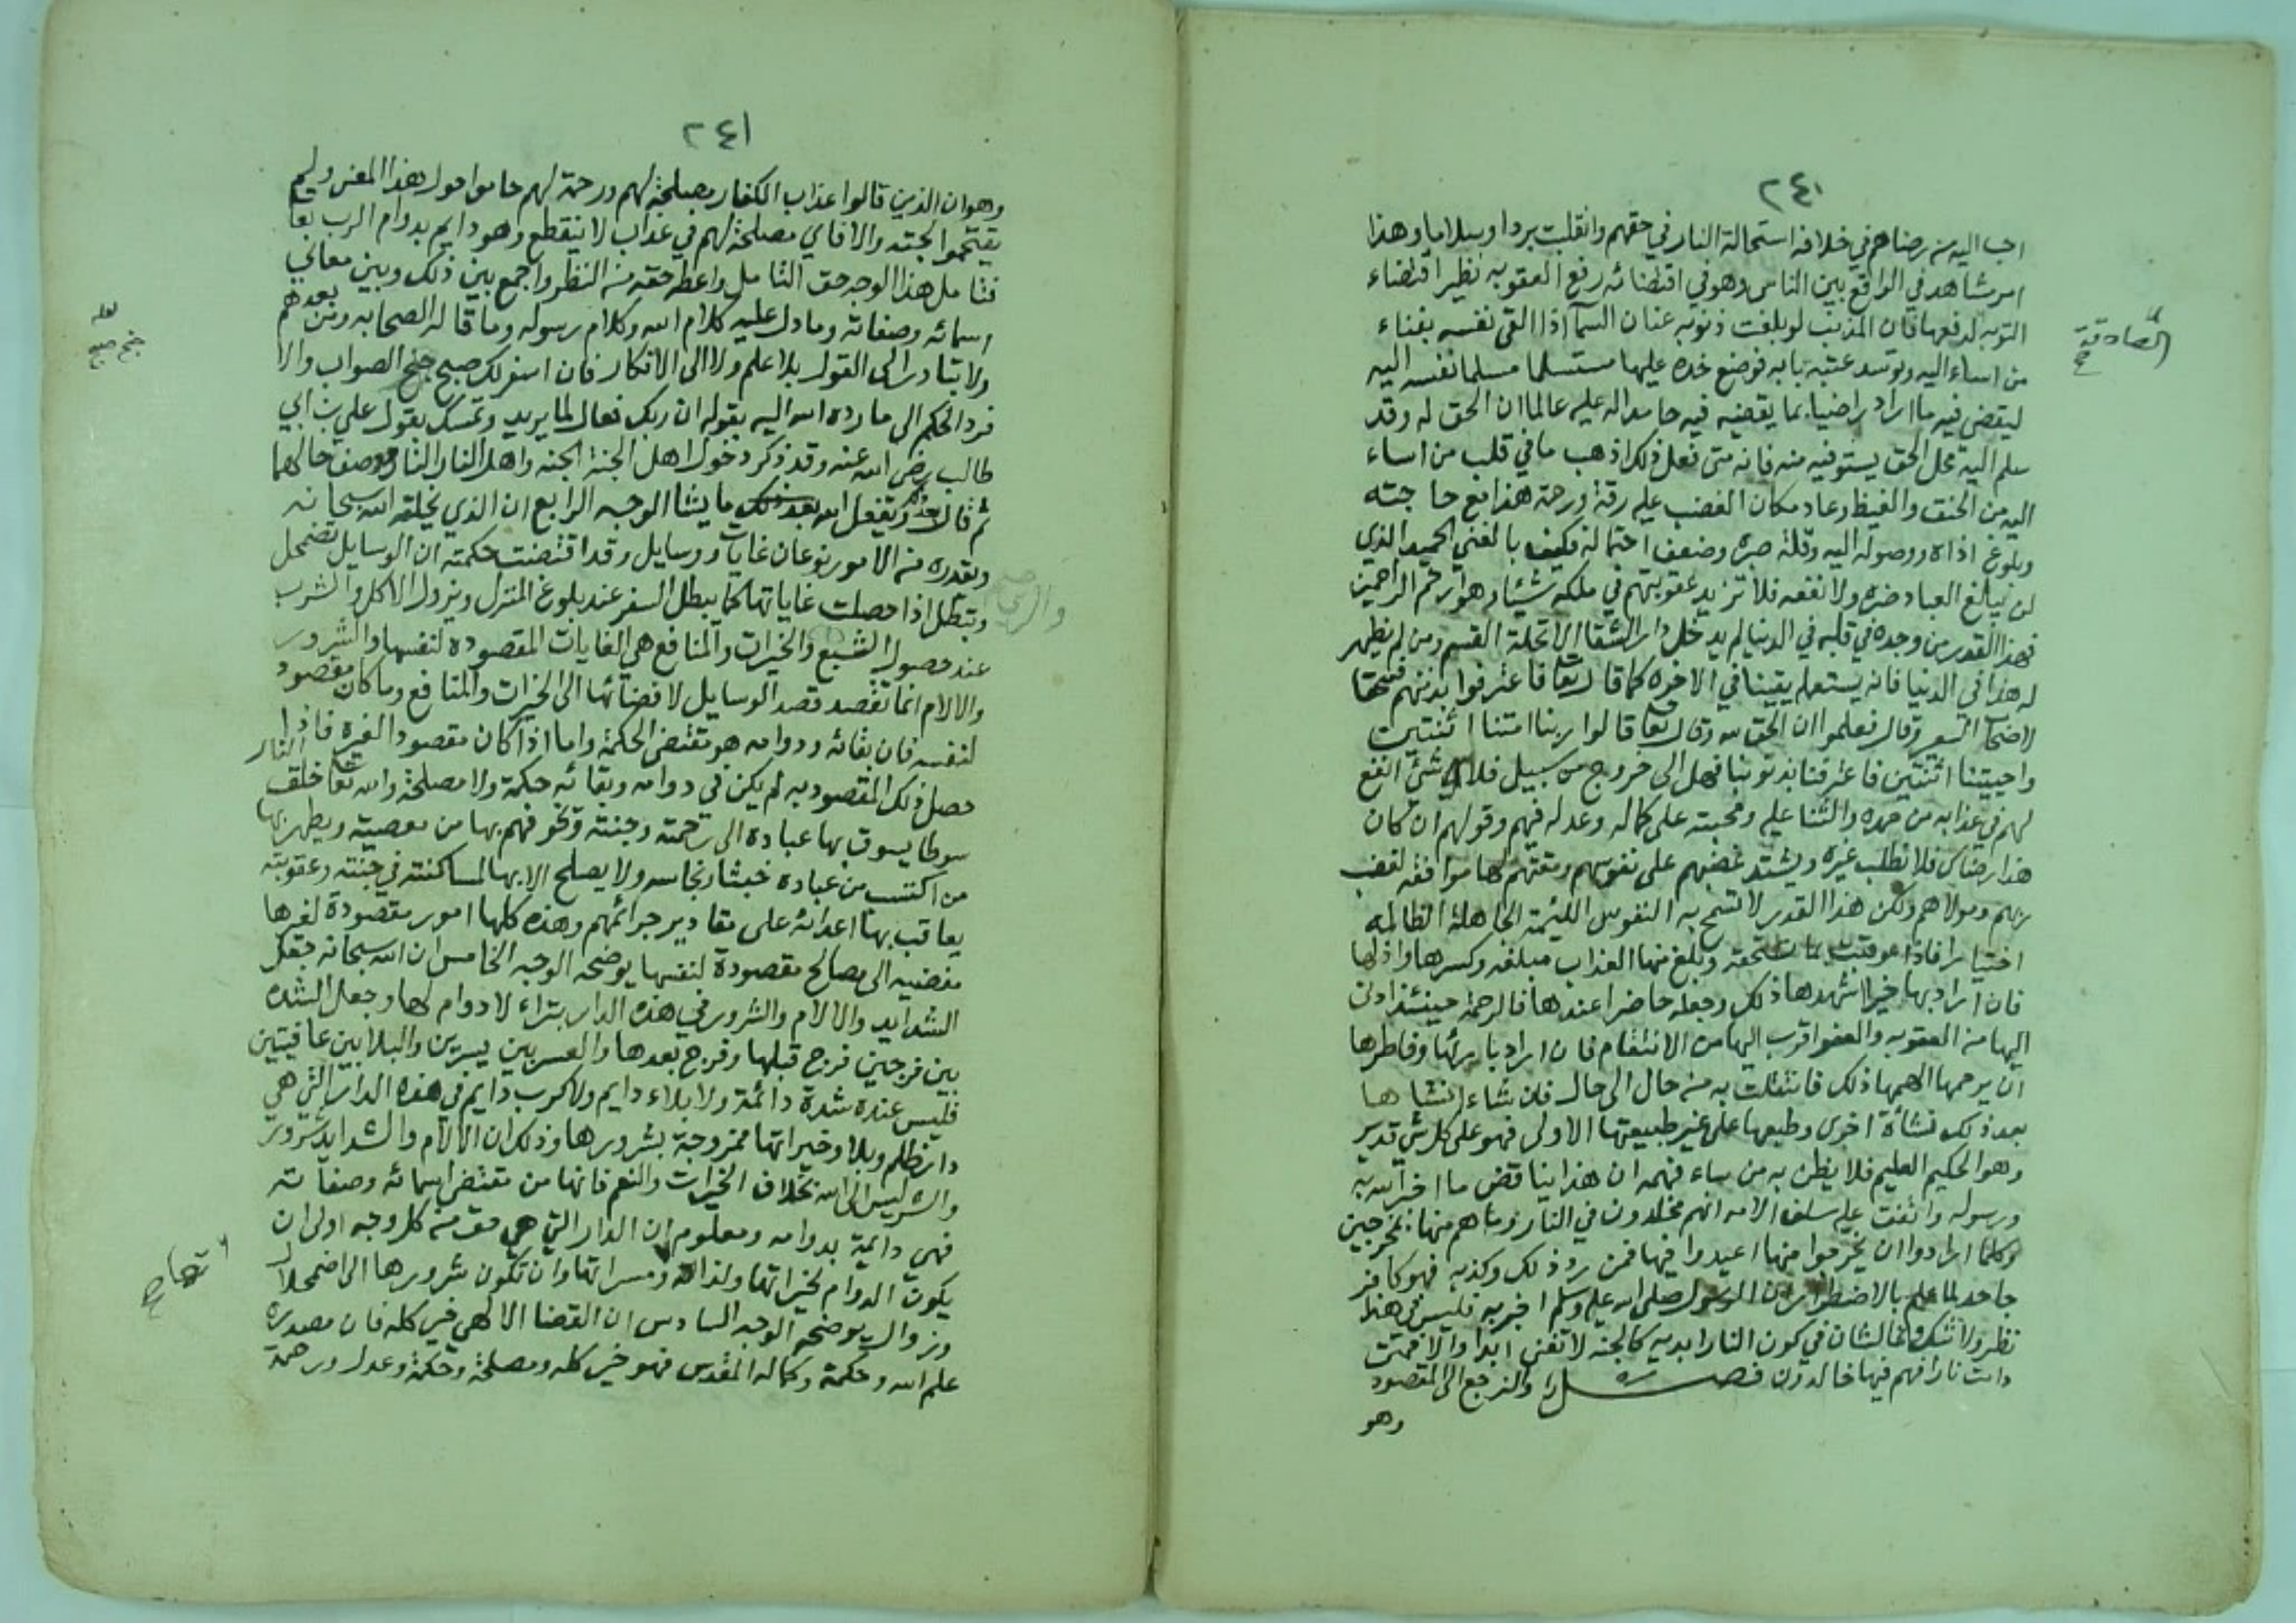 ٢٤٠
احب اليه من رضاهم في خلافه استحالة النار في حقهم وانقلبت بردا وسلاما وهذا
امر مشاهد في الواقع بين الناس وهو في اقتضائه رفع العقوبه نظير اقتضاء
التوبه لدفعها فان المذنب لو بلغت ذنوبه عنان السما اذا القى نفسه بفناء
من اساء اليه وتوسد عتبة بابه فوضع خده عليها مستسلما مسلما نفسه اليه
ليقضي فيه ما اراد راضيا بما يقضيه فيه حامدا له عليه عالما ان الحق له وقد
سلم اليه محل الحق يستوفيه منه فانه متى فعل ذلك اذهب ما في قلب من اساء
اليه من الحنق والغيظ وعاد مكان الغضب عليه رقة ورحمة هذا مع حاجته
وبلوغ اذاه ووصوله اليه وقلة صبره وضعف احتماله فكيف بالغني الحميد الذي
لن يبلغ العباد ضره ولا نفعه فلا تزيد عقوبتهم في ملكه شيئا وهو ارحم الراحمين
فهذا القدر من وجده في قلبه في الدنيا لم يدخل دار الشقا الا تحلة القسم ومن لم يظهر
له هذا في الدنيا فانه يستعلم يقينا في الاخرة كما قال تعا فاعترفوا بذنبهم فسحقا
لاصحاب السعير وقال فعلموا ان الحق لله وقال تعا قالوا ربنا امتنا اثنتين
واحييتنا اثنتين فاعترفنا بذنوبنا فهل الى خروج من سبيل فلا شئ انفع
لهم في عذابه من حمده والثنا عليه ومحبته على كماله وعدله فيهم وقولهم ان كان
هذا رضاك فلا نطلب غيره ويشتد غضبهم على نفوسهم ومقتهم لها موافقة لغضب
ربهم ومولاهم ولكن هذا القدر لا تسمح به النفوس اللئيمة الجاهلة الظالمه
اختيارا فاذا عوقبت بما تستحقه وبلغ منها العذاب مبلغه وكسرها واذلها
فان اراد بها خيرا اشهدها ذلك وجعله حاضرا عندها فالرحمة حينئذ ادنى
اليها من العقوبه والعفو اقرب اليها من الانتقام فان اراد باريها وفاطرها
ان يرحمها الهمها ذلك فانتقلت به من حال الى حال فان شاء انشاها
بعد ذلك نشأة اخرى وطبعها على غير طبيعتها الاولى فهو على كل شئ قدير
وهو الحكيم العليم فلا يظن به من ساء فهمه ان هذا يناقض ما اخبر الله به
ورسوله واتفقت عليه سلف الامه انهم مخلدون في النار وما هم منها بمخرجين
وكلما ارادوا ان يخرجوا منها اعيدوا فيها فمن رد ذلك وكذبه فهو كافر
جاحد لما علم بالاضطرار ان الرسول صلى الله عليه وسلم اخبر به فليس في هذا
نظر ولا شك وانما الشان في كون النار ابديه كالجنه لا تفنى ابدا والا فمتى
دامت نارا فهم فيها خالدون فصل والنرجع الى المقصود
وهو
الصادقة
٢٤١
وهو ان الذين قالوا عذاب الكفار مصلحة لهم ورحمة لهم حاموا حول هذا المعنى ولم
يقتحموا لجته والا فاي مصلحة لهم في عذاب لا ينقطع وهو دايم بدوام الرب تعا
فتامل هذا الوجه حق التامل واعطه حقه من النظر واجمع بين ذلك وبين معاني
اسمائه وصفاته وما دل عليه كلام الله وكلام رسوله وما قاله الصحابه ومن بعدهم
ولا تبادر الى القول بلا علم ولا الى الانكار فان اسفر لك صبح الصواب والا
فرد الحكم الى ما رده الله اليه بقوله ان ربك فعال لما يريد وتمسك بقول علي بن ابي
طالب رضي الله عنه وقد ذكر دخول اهل الجنة الجنه واهل النار النار ووصف حالهما
ثم قال ويفعل الله بعد ذلك ما يشا الوجه الرابع ان الذي يخلقه الله سبحانه
ويقدره من الامور نوعان غايات ووسايل وقد اقتضت حكمته ان الوسايل تضمحل
وتبطل اذا حصلت غاياتها كما يبطل السفر عند بلوغ المنزل ويزول الاكل والشرب
عند حصول الشبع والخيرات والمنافع هي الغايات المقصوده لنفسها والشرور
والالام انما تقصد قصد الوسايل لافضائها الى الخيرات والمنافع وما كان مقصود
لنفسه فان بقائه ودوامه هو مقتضى الحكمة واما اذا كان مقصود الغيره فاذا
حصل ذلك المقصود به لم يكن في دوامه وبقائه حكمة ولا مصلحة والله تعا خلق النار
سوطا يسوق بها عباده الى رحمته وجنته ويخوفهم بها من معصيته ويطهر بها
من اكتسب من عباده خبثا ونجاسه ولا يصلح الا بها لمساكنته في جنته وعقوبته
يعاقب بها اعدائه على مقادير جرائمهم وهذه كلها امور مقصودة لغيرها
مفضيه الى مصالح مقصودة لنفسها يوضحه الوجه الخامس ان الله سبحانه جعل
الشدايد والالام والشرور في هذه الدار بتراء لا دوام لها وجعل الشده
بين فرجين فرج قبلها وفرج بعدها والعسر بين يسرين والبلا بين عافيتين
فليس عنده شدة دائمة ولا بلاء دايم ولا كرب دايم في هذه الدار التي هي
دار ظلم وبلا وخيراتها ممزوجة بشرورها وذلك ان الالام والشدايد شرور
والشر ليس الى الله بخلاف الخيرات والنعم فانها من مقتضى اسمائه وصفاته
فهي دايمة بدوامه ومعلوم ان الدار التي هي حق من كل وجه اولى ان
يكون الدوام لخيراتها ولذاتها ومسراتها وان تكون شرورها الى اضمحلال
وزوال يوضحه الوجه السادس ان القضا الالهي خير كله فان مصدره
علم الله وحكمته وكماله المقدس فهو خير كله ومصلحة وحكمة وعدل ورحمة